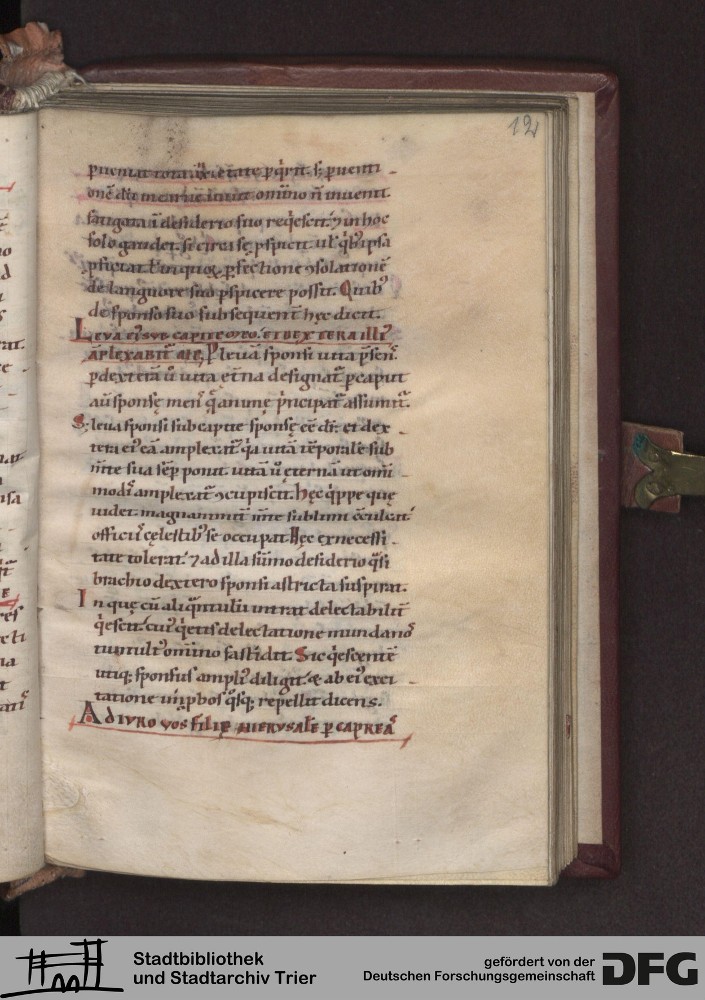 12
one
fatigata desiderio suo reqescit. ⁊ in hoc
solo gaudet. si circa se pspicit. ul qb' ipsa
pfectione ⁊solatione
de languore suo pspicere possit. Quib'
de sponso suo subsequent hęc dicit.
Leva ei' sub capite meo. et dextera illi'
āplexabit me, P leuā sponsi uita psen.
p dexterā ū uita etna designat. p caput
aū sponsę men q anime principat assumit.
S; leua sponsi sub capite sponsę ee dr. et dex
tera ei' eā amplexat. qa uitā teporale sub
mte sua sep ponit. uitā ū eternā ut omi
modis amplexat ⁊cupiscit. Hęc qppe que
uidet. magnanimit mte sublim
officiis cęlestib' se occupat. Hęc ex necessi
tate tolerat. ⁊ ad illa sumo desiderio qsi
brachio dextero sponsi astricta suspirat.
In quę cū aliqntulū intrat delectabilit
qescit. cui' qetis delectatione mundano
tumult' omino fastidit. Sic qescente
utiq; sponsus ampli' diligit. & ab ei' exci
tatione improbos qsq; repellit dicens.
Adiuro vos filię Hierusale p capreas
Stadtbibliothek
und Stadtarchiv Trier
gefördert von der
Deutschen Forschungsgemeinschaft
DFG